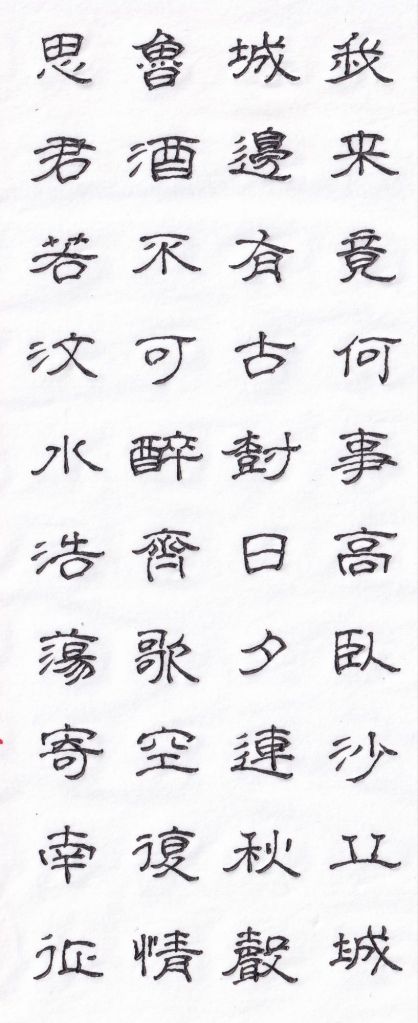 我来竟何事高臥沙丘城
城邊有古尌日夕連秋聲
魯酒不可醉齊歌空復情
思君若汶水浩蕩寄南征